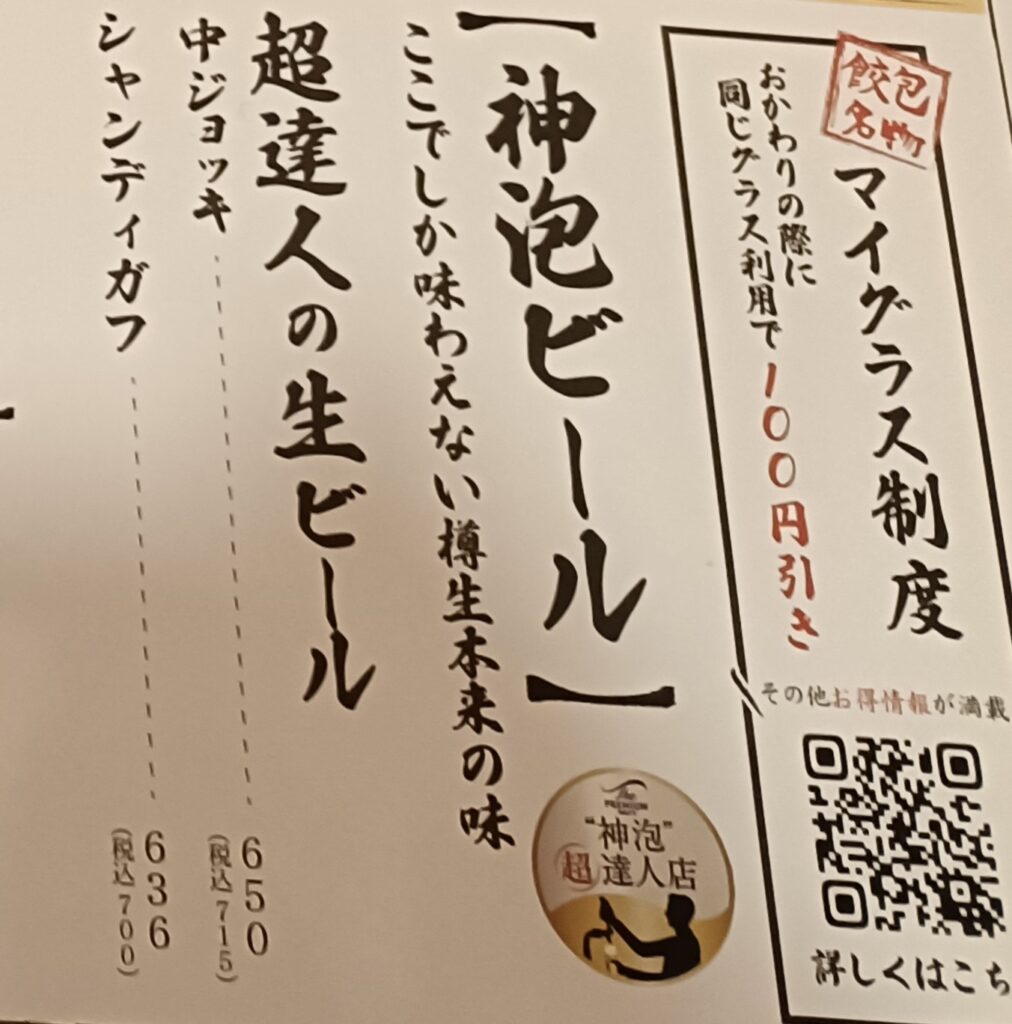 餃包
名物
マイグラス制度
おかわりの際に
同じグラス利用で100円引き
その他お得情報が満載
詳しくはこち
【神泡ビール】
The
PREMIUM
"神泡"
超達人店
ここでしか味わえない樽生本来の味
超達人の生ビール
中ジョッキ 650
(税込715)
シャンディガフ 636
(税込700)